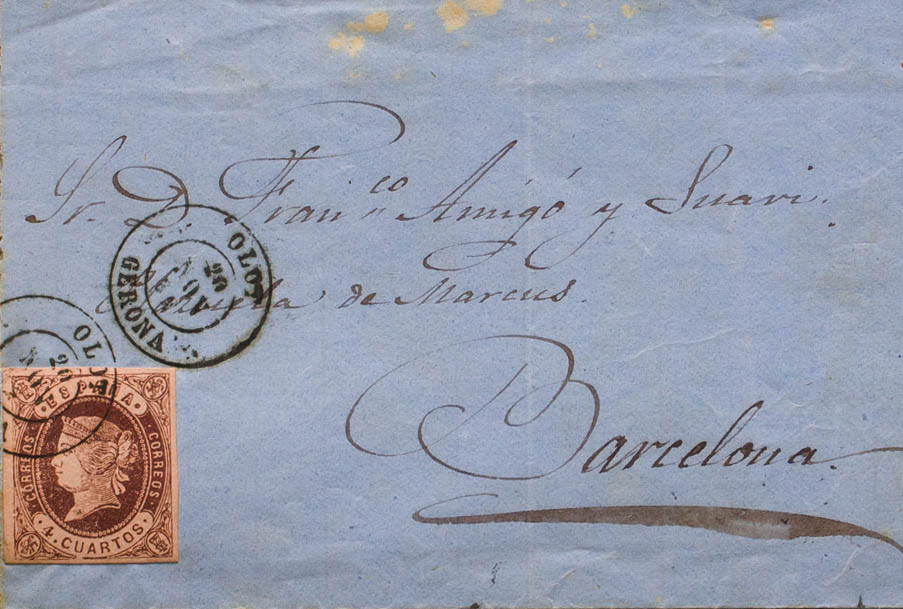 Sr. D. Fran.co Amigó y Suari.
de Marcus.
Barcelona.
OLOT
20 NOV
GERONA
OLOT
20 NOV
ESPAÑA
CORREOS
CORREOS
4. CUARTOS